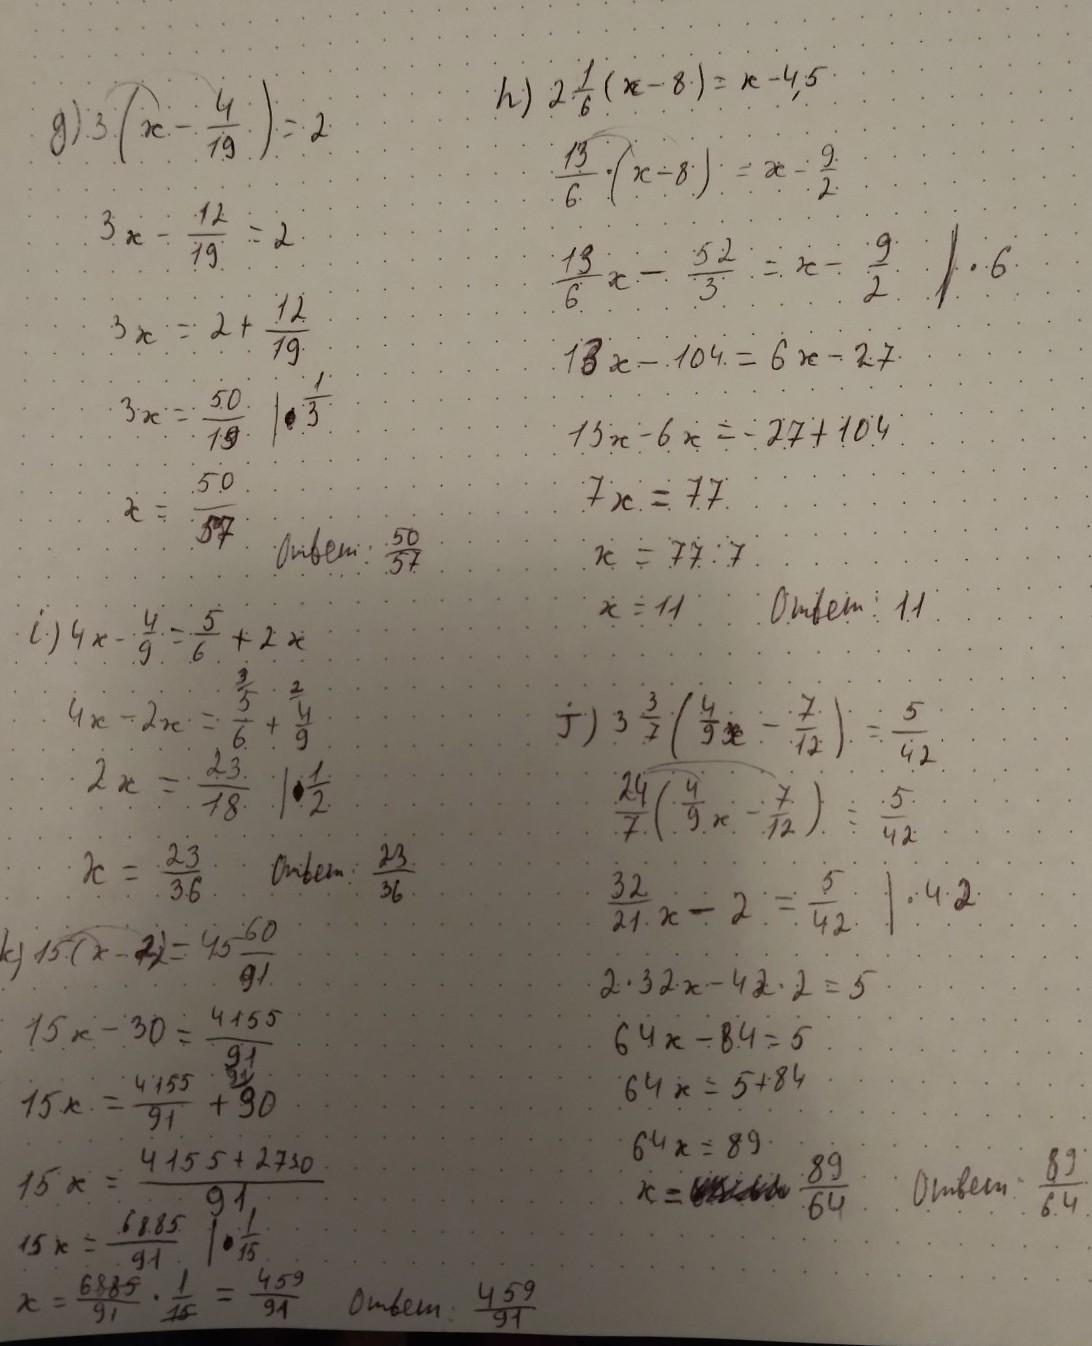 g) 3(x - 4/19) = 2
3x - 12/19 = 2
3x = 2 + 12/19
3x = 50/19 | · 1/3
x = 50/57
Ответ: 50/57
h) 2 1/6 (x - 8) = x - 4,5
13/6 · (x - 8) = x - 9/2
13/6 x - 52/3 = x - 9/2 | · 6
13x - 104 = 6x - 27
13x - 6x = - 27 + 104
7x = 77
x = 77 : 7
x = 11 Ответ: 11
i) 4x - 4/9 = 5/6 + 2x
4x - 2x = 5/6 (3 + 4/9 (2
2x = 23/18 | · 1/2
x = 23/36 Ответ: 23/36
j) 3 3/7 (4/9 x - 7/12) = 5/42
24/7 (4/9 x - 7/12) = 5/42
32/21 x - 2 = 5/42 | · 42
2·32x - 42·2 = 5
64x - 84 = 5
64x = 5 + 84
64x = 89
x = 89/64 Ответ: 89/64
k) 15(x - 2) = 45 60/91
15x - 30 = 4155/91
15x = 4155/91 + 30 (91
15x = (4155 + 2730)/91
15x = 6885/91 | · 1/15
x = 6885/91 · 1/15 = 459/91 Ответ: 459/91